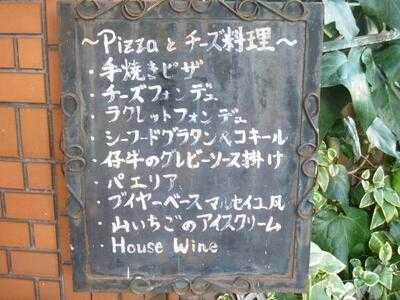 ～Pizzaと チーズ料理～
・手焼きピザ
・チーズフォンデュ
・ラクレットフォンデュ
・シーフードグラタン&コキール
・仔牛のグレビーソース掛け
・パエリア
・ブイヤーベースマルセイユ風
・山いちごのアイスクリーム
・House Wine